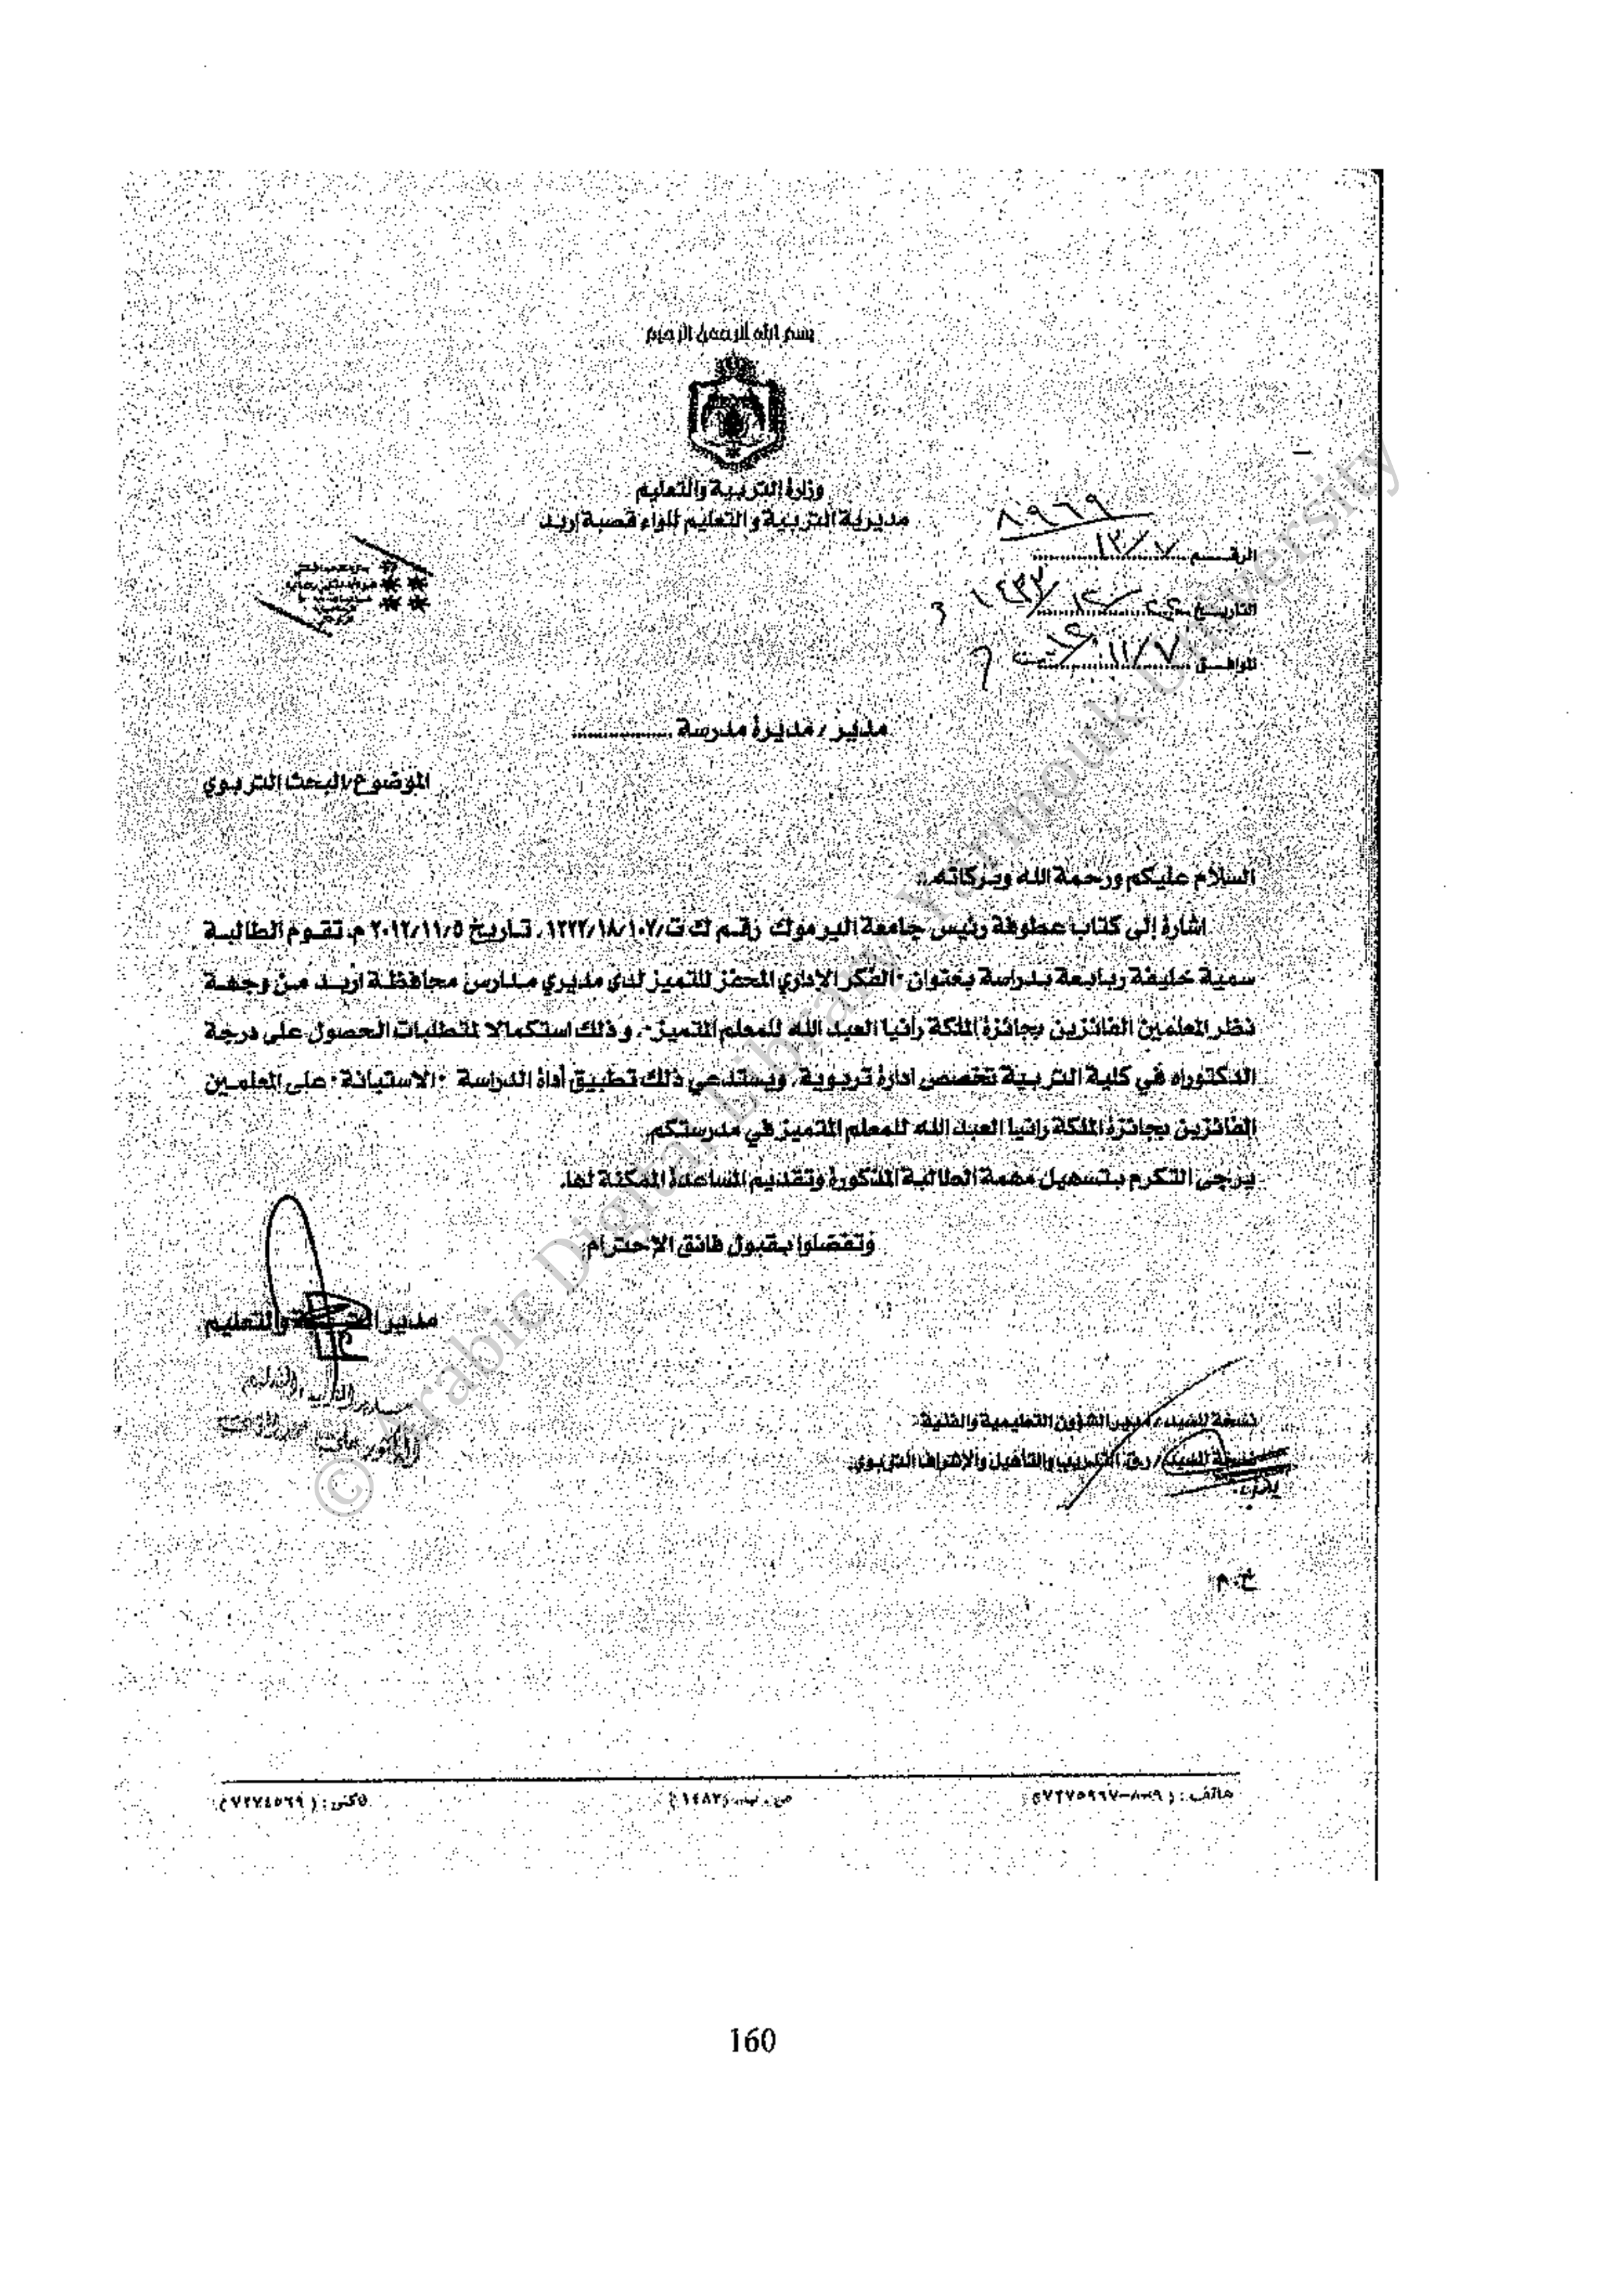 بسم الله الرحمن الرحيم
وزارة التربية والتعليم
مديرية التربية والتعليم للواء قصبة اربد
٨٩٦٩
الرقــم ١٣/٧
التاريــخ
الموافــق ١١/٧
مدير / مديرة مدرسة ..................
الموضوع/البحث التربوي
السلام عليكم ورحمة الله وبركاته..
اشارة إلى كتاب عطوفة رئيس جامعة اليرموك رقم ك ت/١٠٧/١٨/ تاريخ ٢٠١٢/١١/٥ م، تقوم الطالبة
سمية خليفة ربابعة بدراسة بعنوان "الفكر الإداري المحفز للتميز لدى مديري مدارس محافظة اربد من وجهة
نظر المعلمين الفائزين بجائزة الملكة رانيا العبد الله للمعلم المتميز"، وذلك استكمالا لمتطلبات الحصول على درجة
الدكتوراه في كلية التربية تخصص ادارة تربوية، ويستدعي ذلك تطبيق أداة الدراسة "الاستبانة" على المعلمين
الفائزين بجائزة الملكة رانيا العبد الله للمعلم المتميز في مدرستكم.
يرجى التكرم بتسهيل مهمة الطالبة المذكورة وتقديم المساعدة الممكنة لها.
وتفضلوا بقبول فائق الاحترام
مدير التربية والتعليم
مدير التربية والتعليم
الدكتور علي
نسخة للسيد مدير الشؤون التعليمية والفنية
نسخة للسيد / رق التدريب والتأهيل والإشراف التربوي
خ.م
هاتف : ( ٩-٨-٧٢٧٥٩٦٧ )
ص . ب ( ١٤٨٢ )
فاكس : ( ٧٢٧٤٥٦٩ )
160
© Arabic Digital Library-Yarmouk University